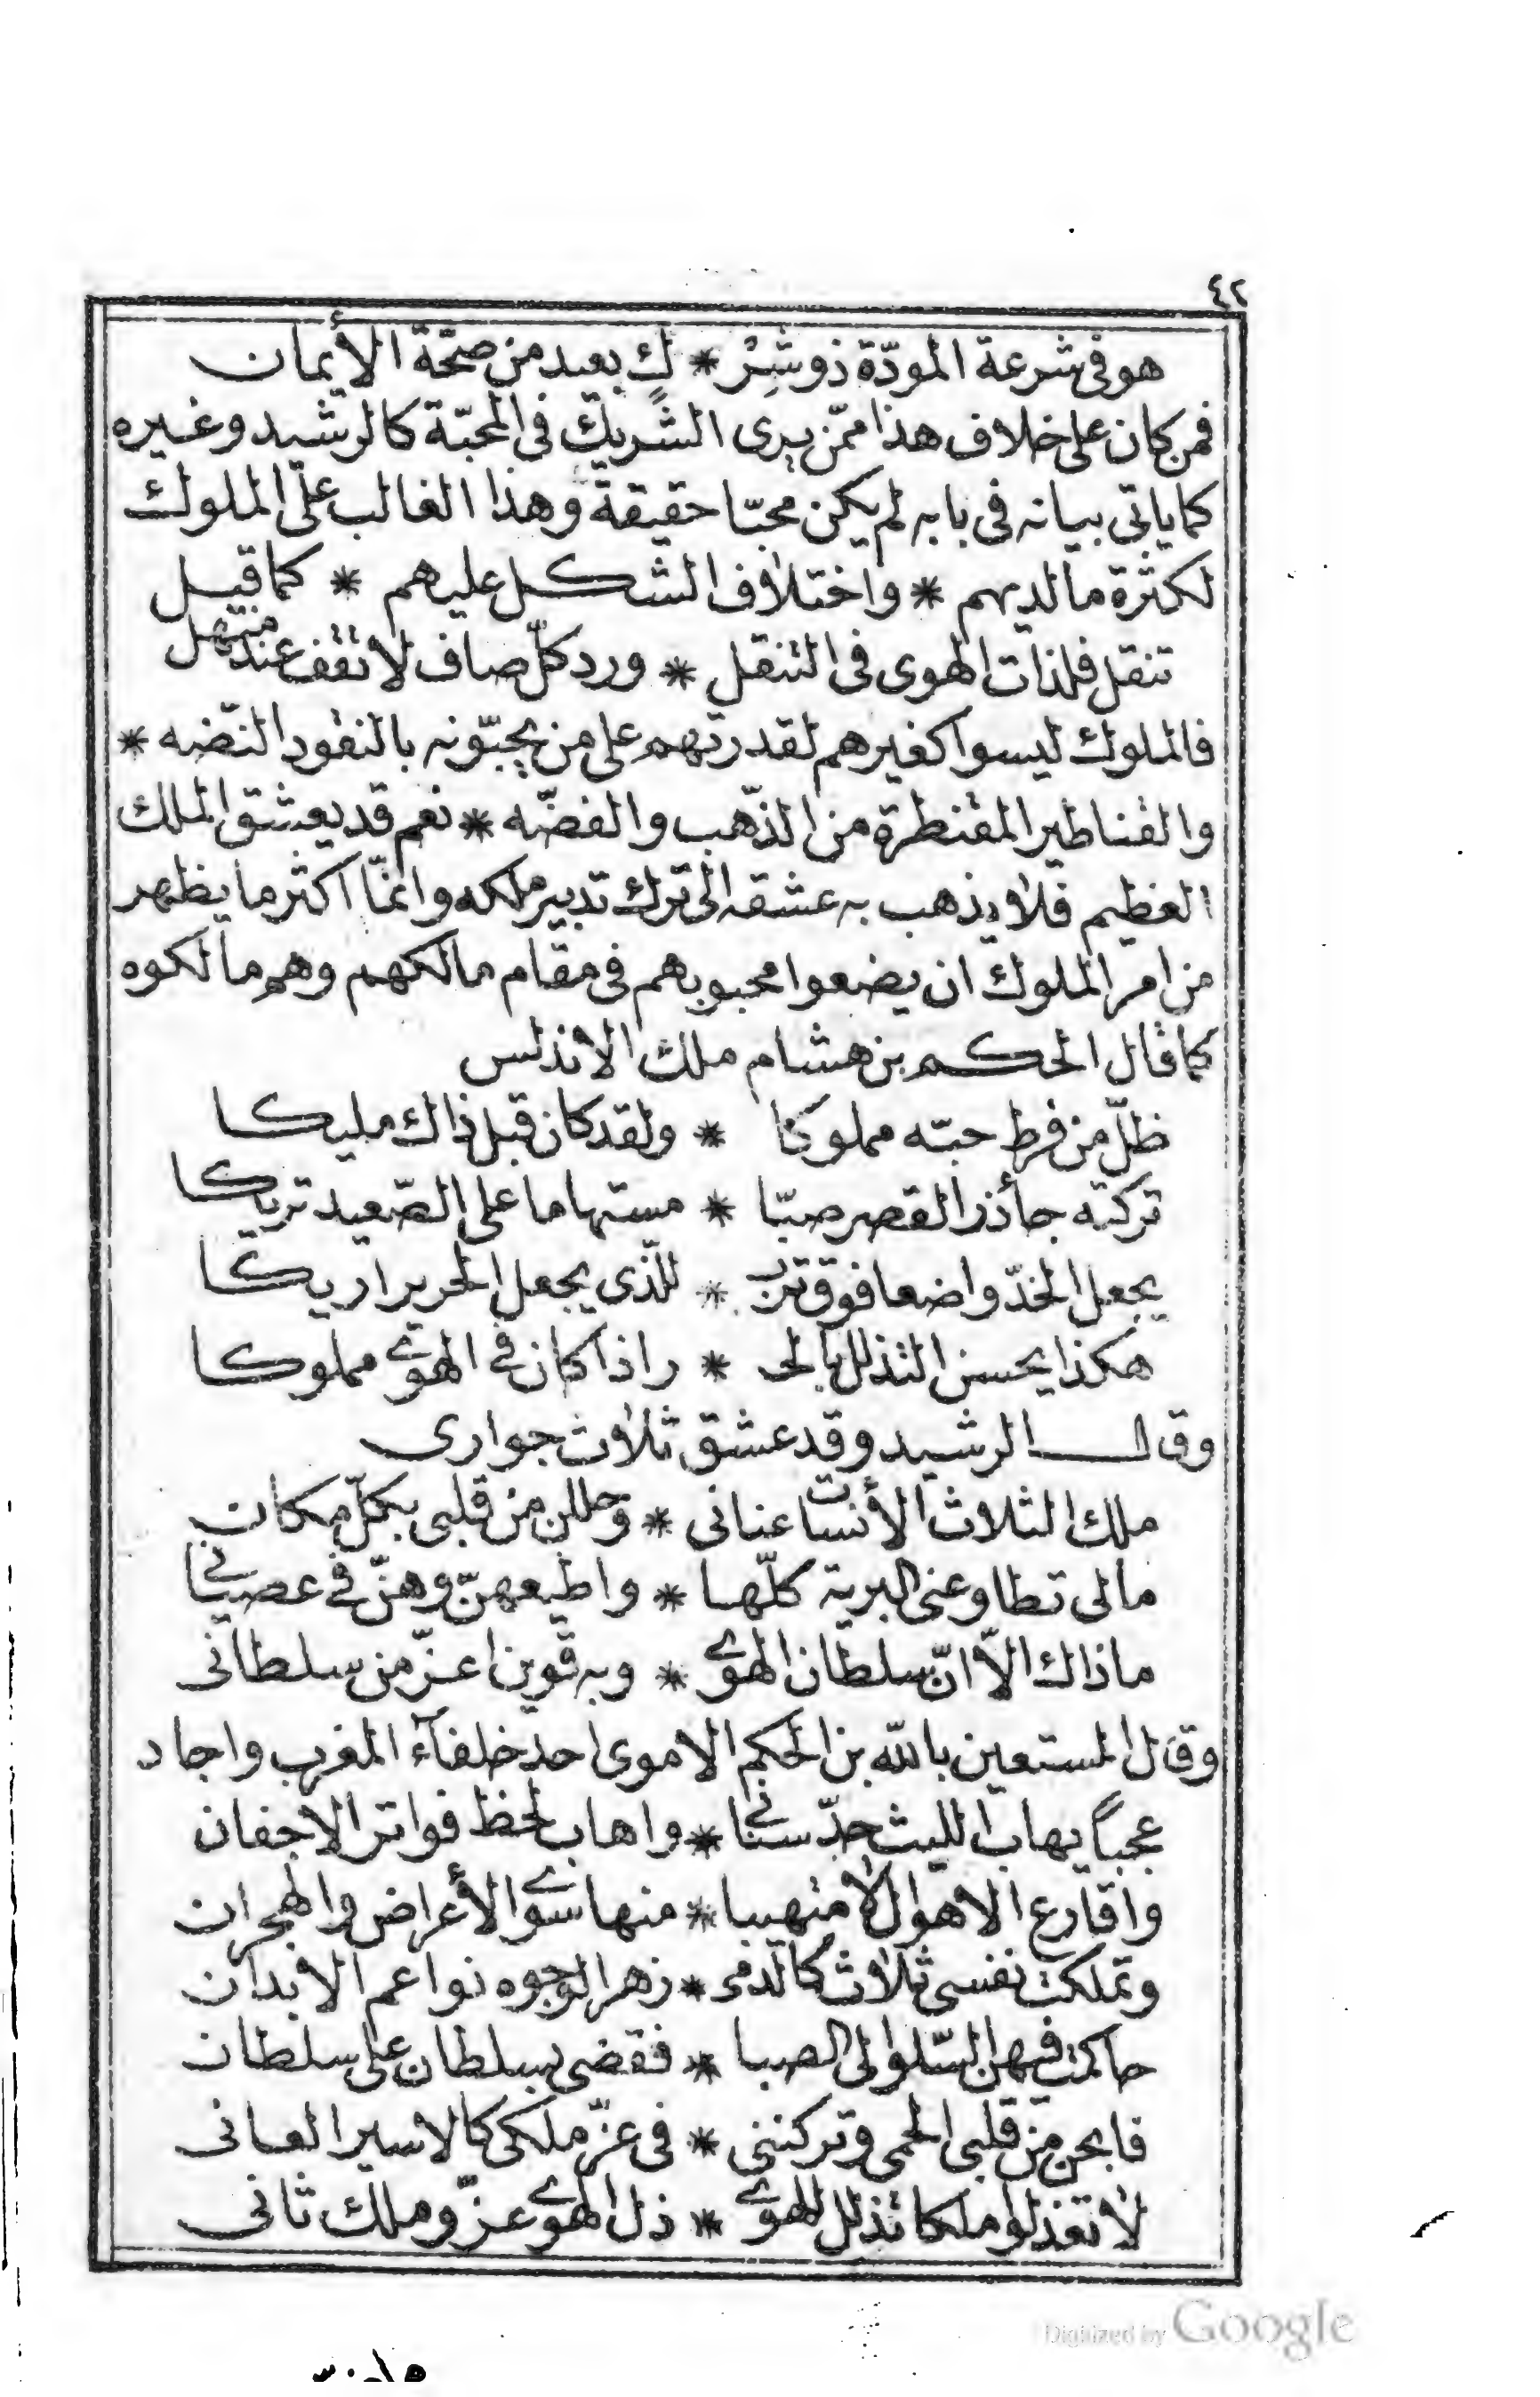 ٤٢
هو فى شرعة المودّة ذو شِرْ * كٍ بعيد من صحّة الأيمان
فمن كان على خلاف هذا ممّن يرى الشريك فى المحبّة كالرشيد وغيره
كما ياتى بيانه فى بابه لم يكن محبّا حقيقة وهذا الغالب على الملوك
لكثرة مالديهم * واختلاف الشكل عليهم * كما قيل
تنقل فلذات الهوى فى التنقل * ورد كلّ صاف لا تقف عند منهل
فالملوك ليسوا كغيرهم لقدرتهم على من يحبّونه بالنقود النّضه *
والقناطير المقنطرة من الذّهب والفضّه * نعم قد يعشق الملك
العظيم فلا يذهب به عشقه الى ترك تدبير ملكه وانمّا اكثر ما يظهر
من امر الملوك ان يضعوا محبوبهم فى مقام مالكهم وهم مالكوه
كما قال الحكم بن هشام ملك الاندلس
ظلّ من فرط حبّه مملوكا * ولقد كان قبل ذاك مليكا
تركته جأذر القصر صبّا * مستهاما على الصّعيد تريكا
يجعل الخدّ واضعا فوق ترب * للّذى يجعل الحرير اريكا
هكذا يحسن التذلل بالحـ * ر اذا كان فى الهوى مملوكا
وقال الرشيد وقد عشق ثلاث جوارى
ملك الثلاث الأنسات عنانى * وحللن من قلبى بكلّ مكان
مالى تطاوعنى البرية كلّها * واطيعهنّ وهنّ فى عصيانى
ماذاك الاّ انّ سلطان الهوى * وبه قوين اعزّ من سلطانى
وقال المستعين بالله بن الحكم الاموى احد خلفآء المغرب واجاد
عجباً يهاب الليث حدّ سنانى * واهاب لحظ فواتر الاجفان
واقارع الاهوال لا متهيبا * منها سوى الأعراض والهجران
وتملكت نفسى ثلاث كالدمى * زهر الوجوه نواعم الابدان
حاكمت فيهن السّلو الى الصبا * فقضى بسلطان على سلطان
فابحن من قلبى الحمى وتركننى * فى عزّ ملكى كالاسير العانى
لا تعذلوا ملكا تذلل للهوى * ذل الهوى عزّ وملك ثانى
Digitized by Google